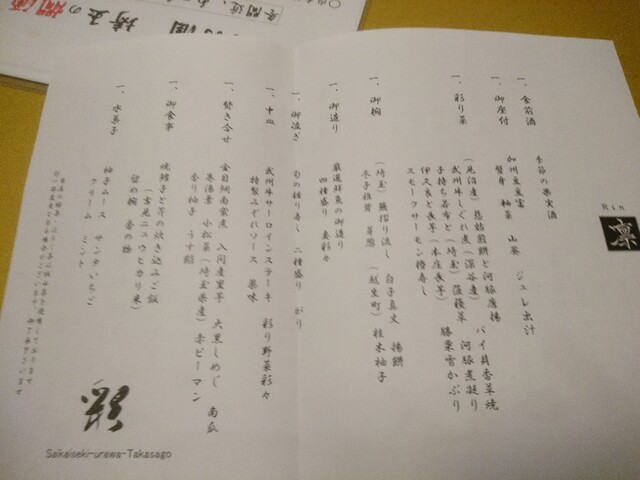 Rin
凛
一、食前酒
季節の果実酒
一、御座付
加州豆豆富
蟹身 柚菜 山葵 ジュレ出汁
一、彩り菜
(見沼産)慈姑煎餅と河豚唐揚 バイ貝香草焼
武州牛しぐれ煮(深谷産) 河豚煮凝り
子持ち若布と(埼玉)菠薐草 勝栗雪かぶり
伊久良と長芋(本庄長芋)
スモークサーモン棒寿し
一、御椀
(埼玉)蕪摺り流し 白子真丈 揚餅
冬子椎茸 芽葱 (越生町)桂木柚子
一、御造り
厳選鮮魚の御造り
四種盛り 妻彩々
一、御凌ぎ
旬の握り寿し 二種盛り がり
一、中皿
武州牛サーロインステーキ 彩り野菜彩々
特製みぞれソース 薬味
一、焚き合せ
金目鯛南蛮煮 入間産里芋 大黒しめじ 南瓜
巻湯葉 小松菜(埼玉県産) 赤ピーマン
香り柚子 うす餡
一、御食事
焼鱈子と芹の炊き込みご飯
留め椀 香の物
一、水菓子
柚子ムース サンタいちご
クリーム ミント
彩
Saikaiseki-urawa-Takasago